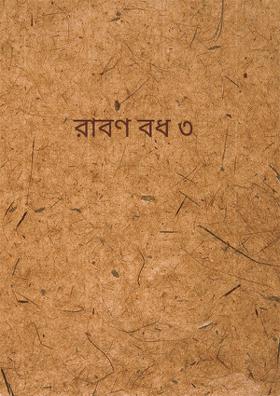 রাবণ বধ ৩